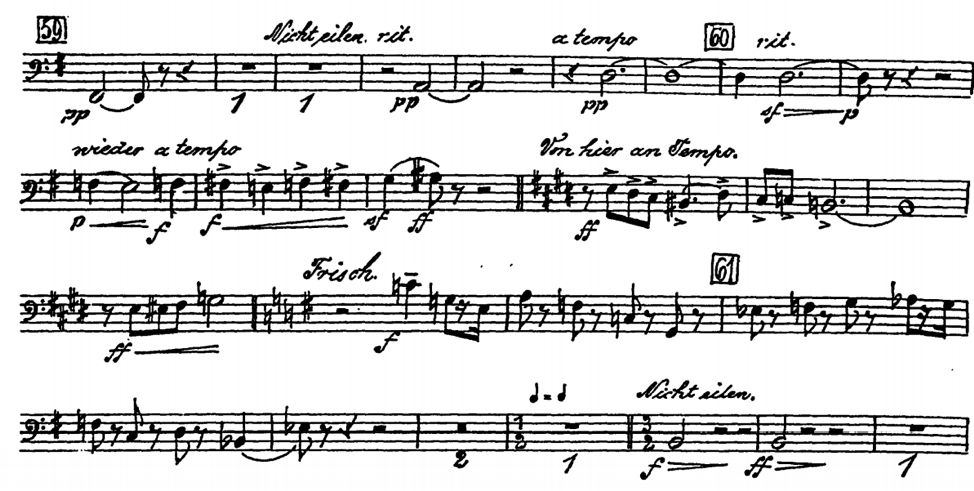 59 Nicht eilen. rit. a tempo 60 rit.
pp 1 1 pp pp sf p
wieder a tempo Von hier an Tempo.
p f f sf ff ff
Frisch. 61
ff f
Nicht eilen.
2 1/2 1 3/2 f ff 1